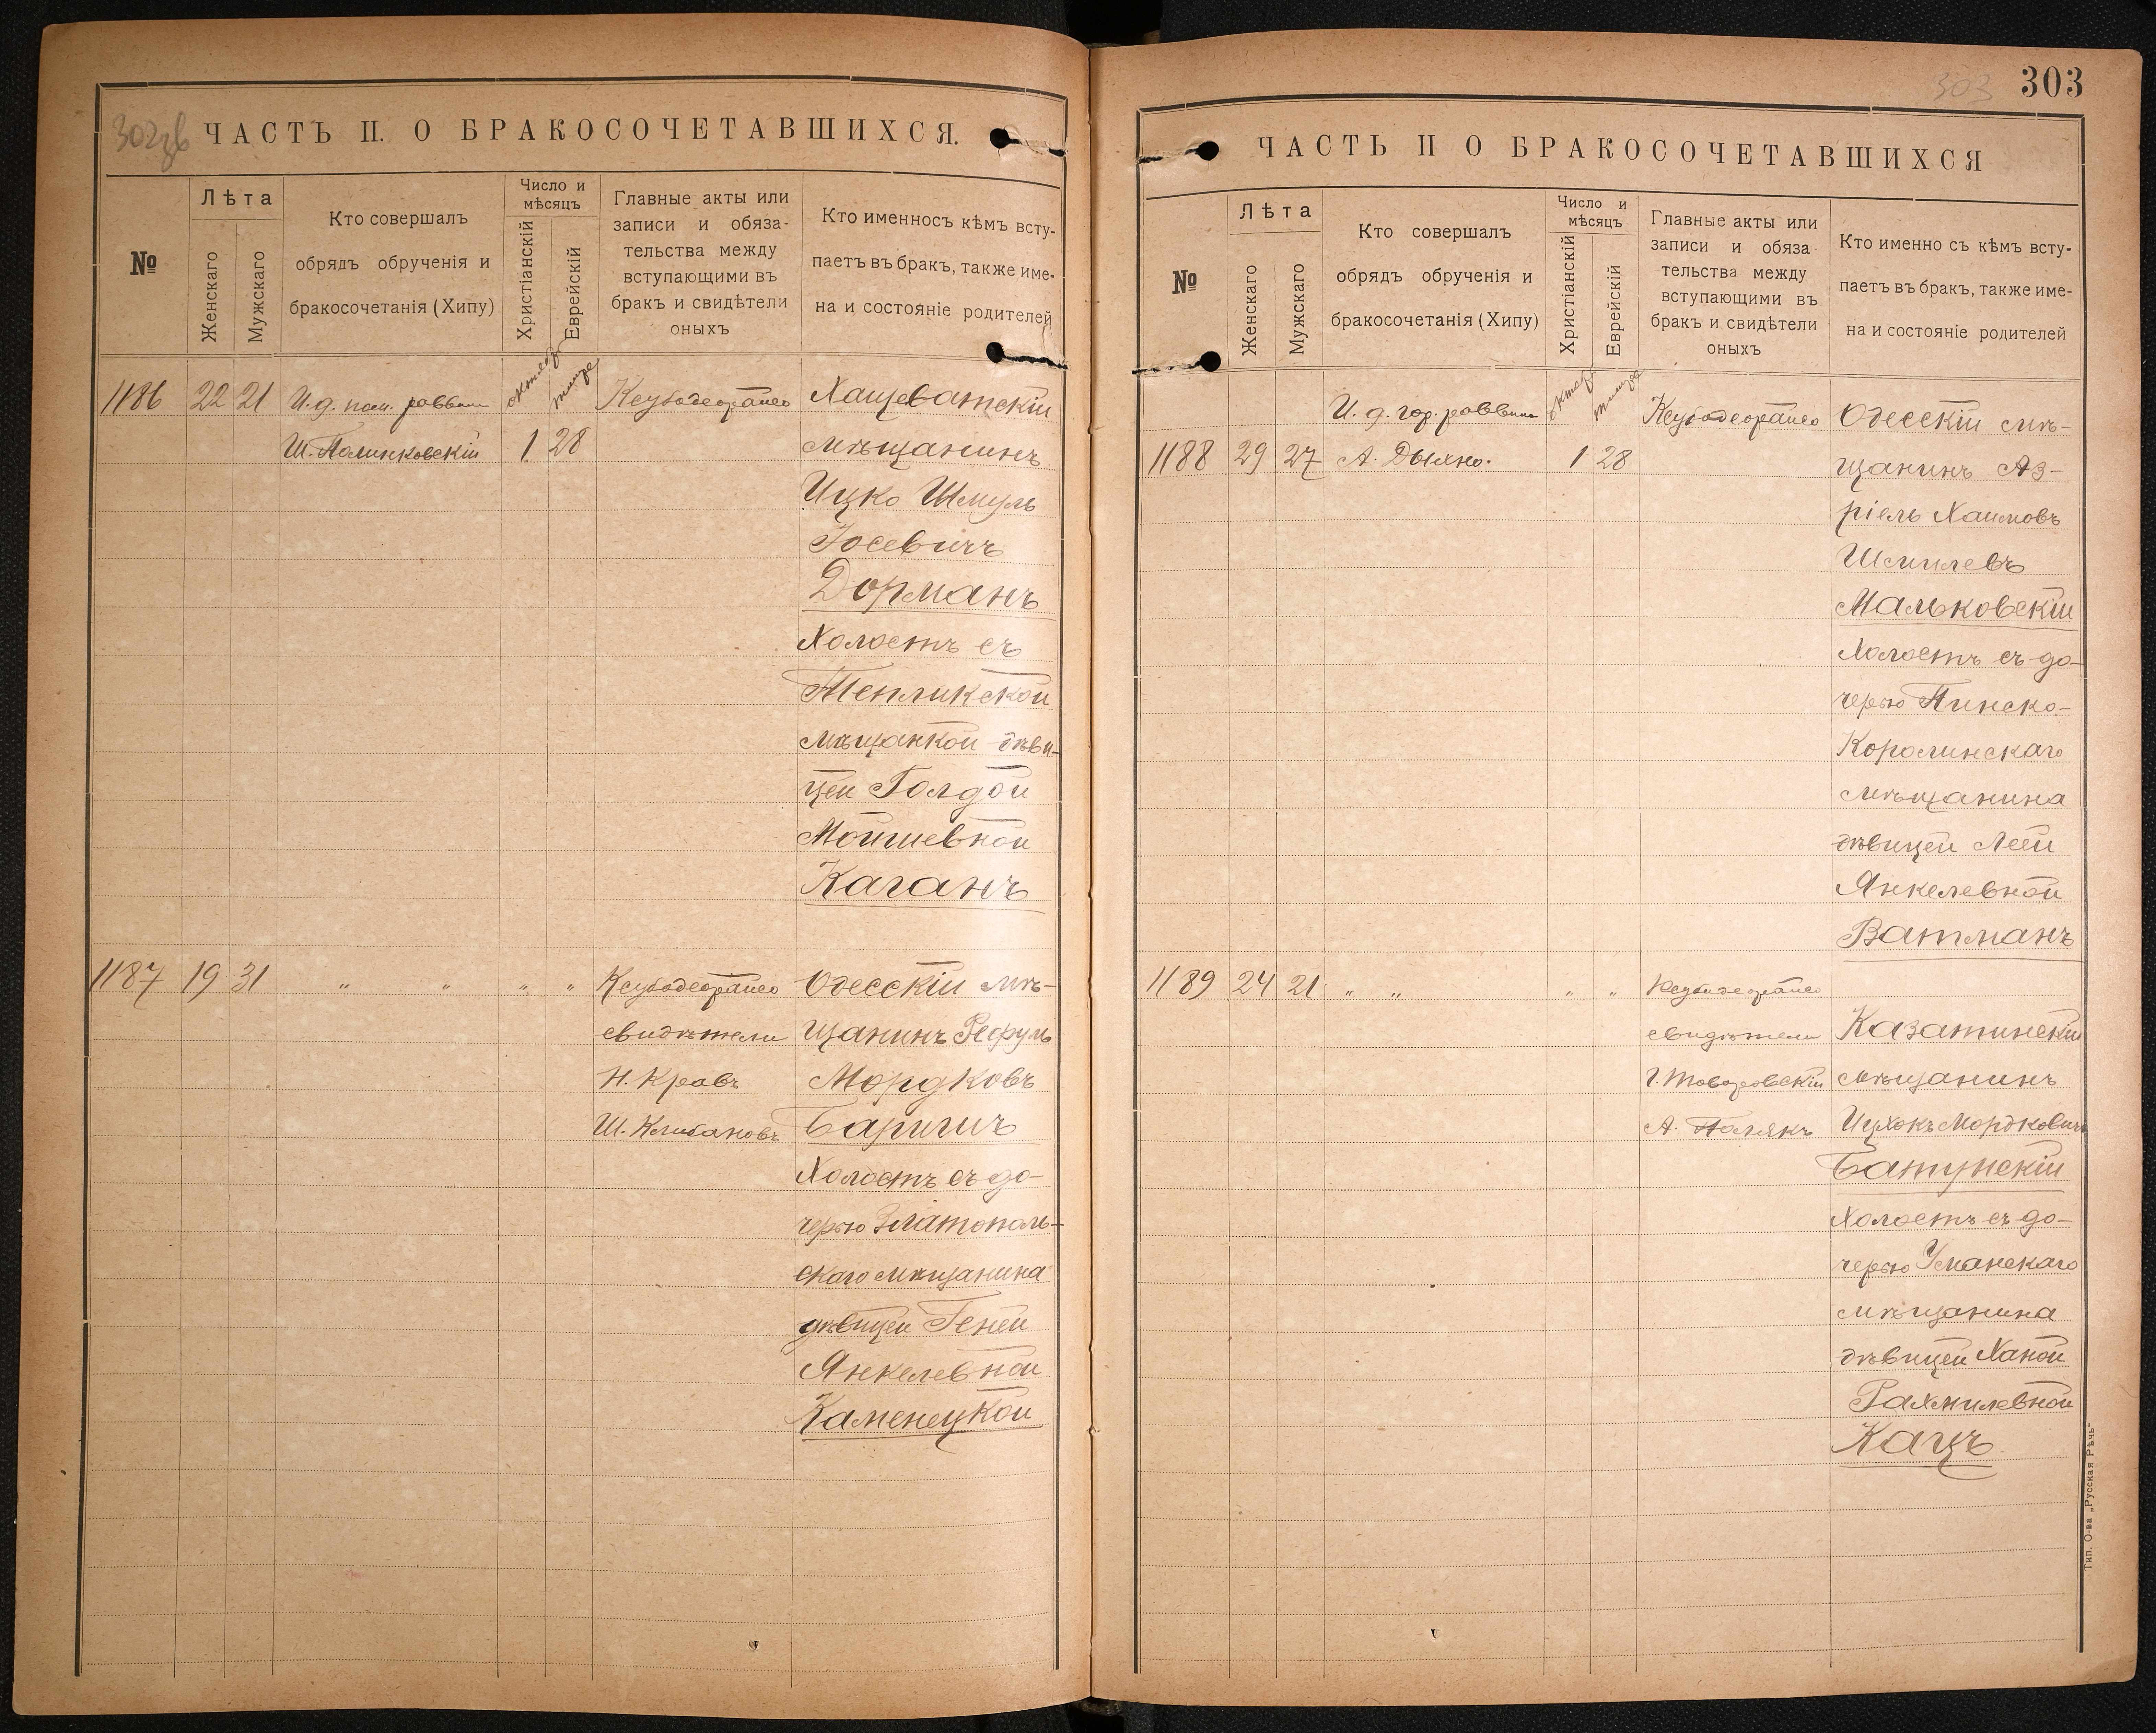 302 зв
ЧАСТЬ II. О БРАКОСОЧЕТАВШИХСЯ.
№
Лѣта
Женскаго
Мужскаго
Кто совершалъ
обрядъ обрученія и
бракосочетанія (Хипу)
Число и
мѣсяцъ
Христіанскій
Еврейскій
Главные акты или
записи и обяза-
тельства между
вступающими въ
бракъ и свидѣтели
оныхъ
Кто именносъ кѣмъ всту-
паетъ въ бракъ, также име-
на и состояніе родителей
1186 22 21 И. д. пом. раввина октябр тишре Ксубодеорайсо Хащеватскій
Ш. Полинковскій 1 28 мѣщанинъ
Ицко Шмуль
Іосевичъ
Дорманъ
Холостъ съ
Тепликской
мѣщанкой дѣви-
цей Голдой
Мойшевной
Каганъ
1187 19 31 " " " " Ксубодеорайсо Одесскій мѣ-
свидѣтели щанинъ Рефулъ
Н. Кравъ Мордковъ
Ш. Клибановъ Баришъ
Холостъ съ до-
черью Златополь-
скаго мѣщанина
дѣвицей Геней
Янкелевной
Каменецкой
303 303
ЧАСТЬ II О БРАКОСОЧЕТАВШИХСЯ
№
Лѣта
Женскаго
Мужскаго
Кто совершалъ
обрядъ обрученія и
бракосочетанія (Хипу)
Число и
мѣсяцъ
Христіанскій
Еврейскій
Главные акты или
записи и обяза
тельства между
вступающими въ
бракъ и свидѣтели
оныхъ
Кто именно съ кѣмъ всту-
паетъ въ бракъ, также име-
на и состояніе родителей
И. д. гор. раввина октябр тишре Ксубодеорайсо Одесскій мѣ-
1188 29 27 А. Дыхно. 1 28 щанинъ Аз-
ріель Хаимовъ
Шмилевъ
Мальковскій
Холостъ съ до-
черью Пинско-
Каролинскаго
мѣщанина
дѣвицей Леей
Янкелевной
Ватманъ
1189 24 21 " " " " Ксубодеорайсо
свидѣтели Казатинскій
мѣщанинъ
А. Полякъ Ицхокъ Мордковичъ
Батунскій
Холостъ съ до-
черью Уманскаго
мѣщанина
дѣвицей Ханой
Рахмилевной
Кацъ
Тип. О-ва „Русская Рѣчь"